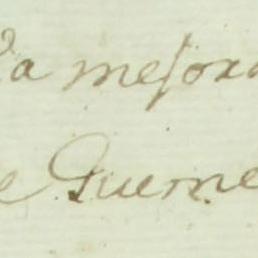 la mejora
e Guerne